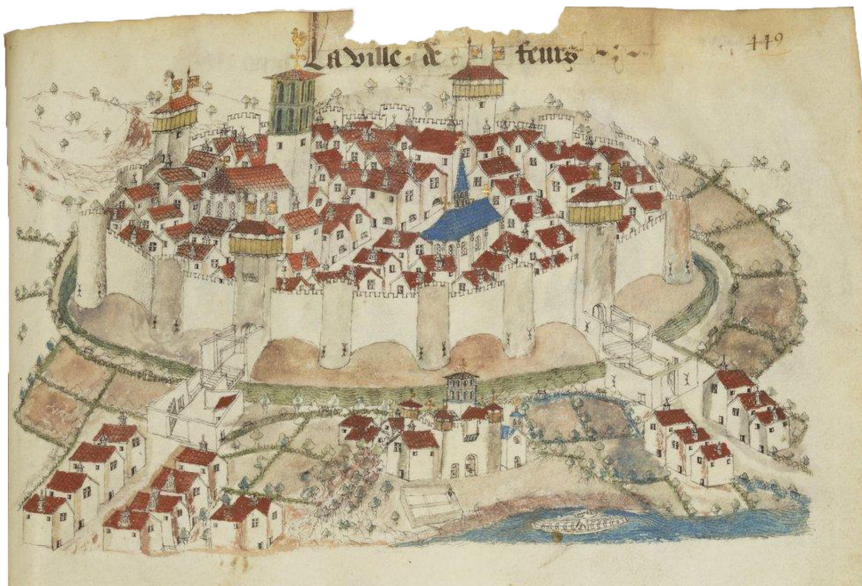 La ville de feurs
449